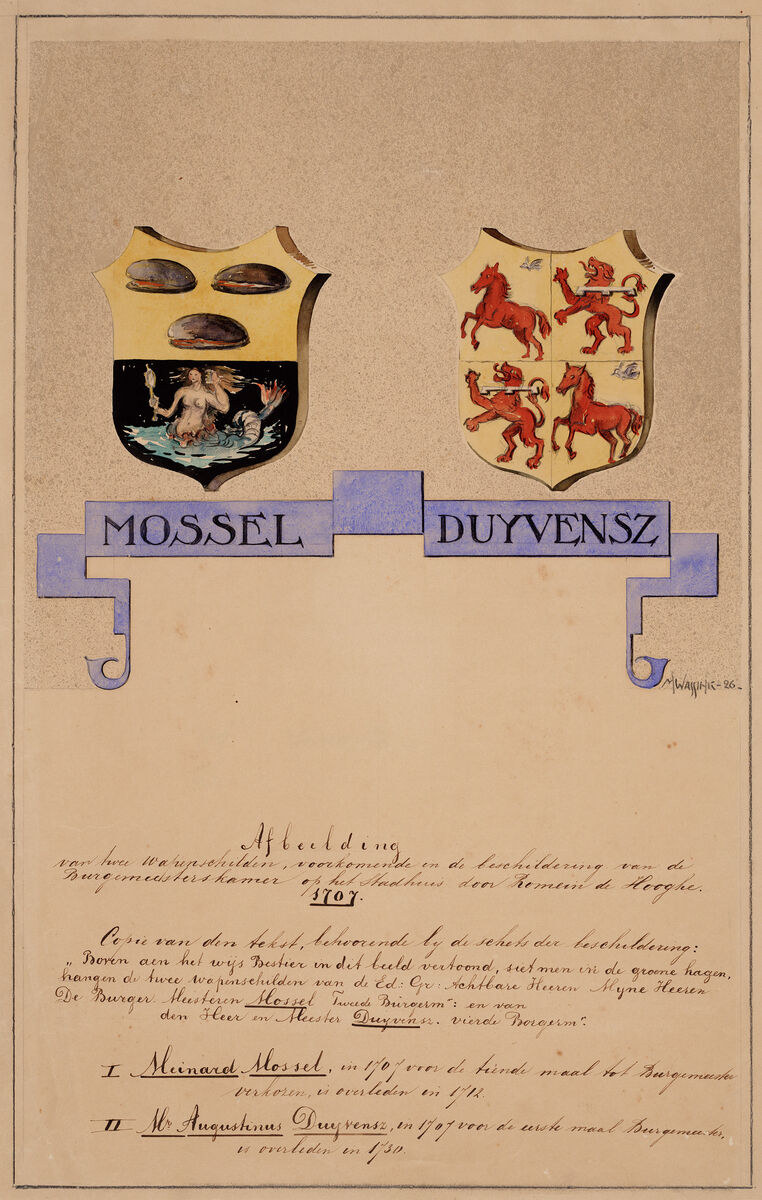 MOSSEL
DUYVENSZ
M WASSINK - 26 -
Afbeelding
van twee wapenschilden, voorkomende in de beschildering van de
Burgemeesterskamer op het Stadhuis door Romein de Hooghe.
1707.
Copie van den tekst, behoorende bij de schets der beschildering:
„Boven aen het wijs Bestier in dit beeld vertoond, siet men in de groene hagen,
hangen de twee wapenschilden van de Ed: Gr: Achtbare Heeren Myne Heeren
De Burger Meesteren Mossel Tweede Burgermr: en van
den Heer en Meester Duyvensz. vierde Borgermr.
I Meinard Mossel, in 1707 voor de tiende maal tot Burgemeester
verkozen, is overleden in 1712.
II Mr Augustinus Duyvensz, in 1707 voor de eerste maal Burgemeester,
is overleden in 1730.